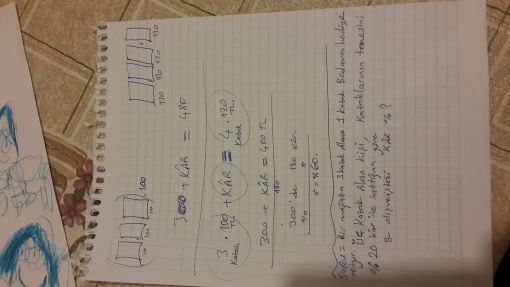 100 100 100 . 100
120 120 120 120
300 + KÂR = 480
3 . 100 + KÂR = 4 . 120
Kabak TL Kabak TL
300 + KÂR = 480 TL
180
300' de 180 kâr.
% x
x = % 60.
SORU = Bir mağaza 3 kabak alana 1 kabak Bedava hediye
veriyor. Üç kabak alan kişi, kabakların tanesini
% 20 kâr ile sattığına göre
Bu alışverişteki KÂR % ?